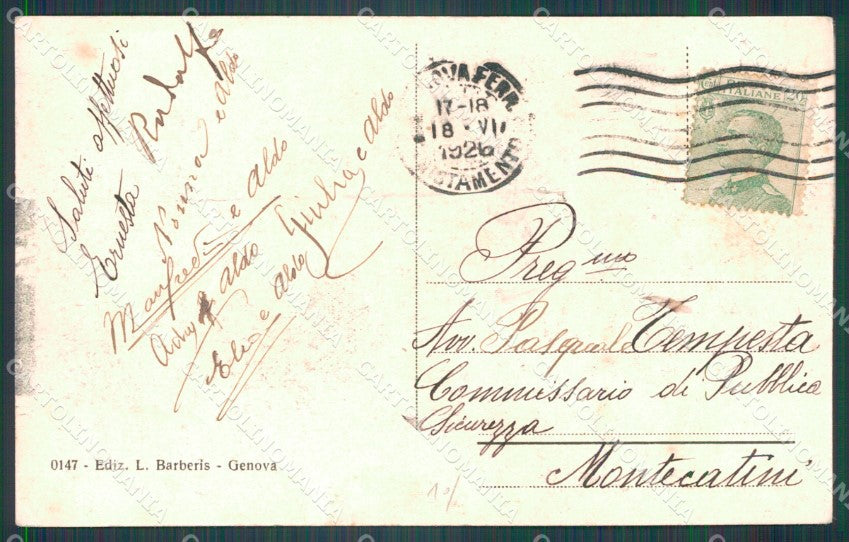 Saluti affettuosi
Ernesta Rudolfo
Nonna e Aldo
Manfredi e Aldo
Aldo
Elio e Aldo Giulia e Aldo
0147 - Ediz. L. Barberis - Genova
OVA FERR.
17-18
18 · VII
1926
ASTAMENTO
POSTE ITALIANE
20
Preg mo
Avv. Pasquale Tempesta
Commissario di Pubblica
Sicurezza
Montecatini
CARTOLINOMANIA